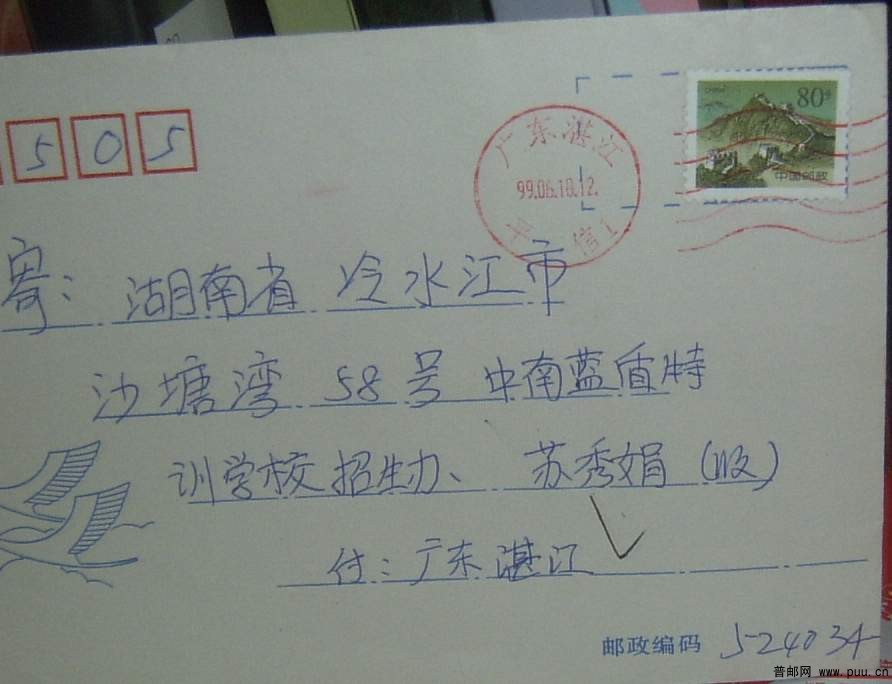 505
80分
中国邮政
广东湛江
99.06.10.12.
信1
寄：湖南省 冷水江市
沙塘湾 58号 中南蓝盾特
训学校招生办、 苏秀娟（收）
付：广东湛江
邮政编码 524034
普邮网 www.puu.cn